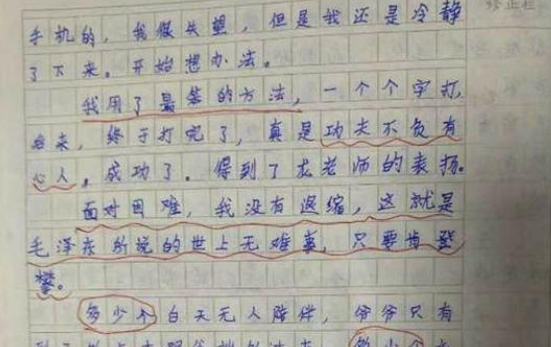 修正栏
手机的，我很失望，但是我还是冷静
了下来。开始想办法。
我用了最笨的方法，一个个字打
出来，终于打完了，真是功夫不负有
心人。成功了。得到了龙老师的表扬。
面对困难，我没有退缩，这就是
毛泽东所说的世上无难事，只要肯登
攀。
多少个白天无人陪伴，爷爷只有